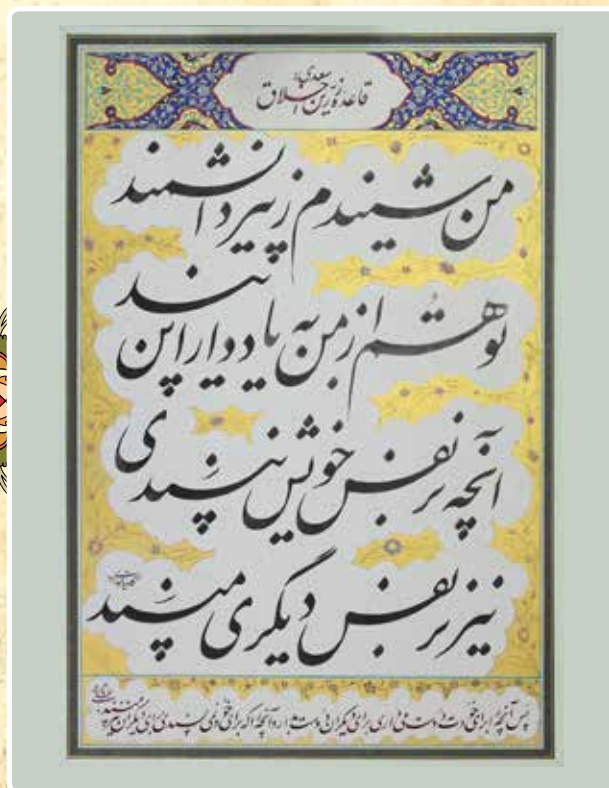 قاعده زرین اخلاق
سعدی
من شنیدم ز پیر دانشمند
تو هم از من به یاد دار این پند
آنچه بر نفس خویش نپسندی
نیز بر نفس دیگری مپسند
پس آنچه را برای خود دوست می داری برای دیگران دوست بدار و آنچه را که برای خود نمی پسندی برای دیگران نیز مپسند